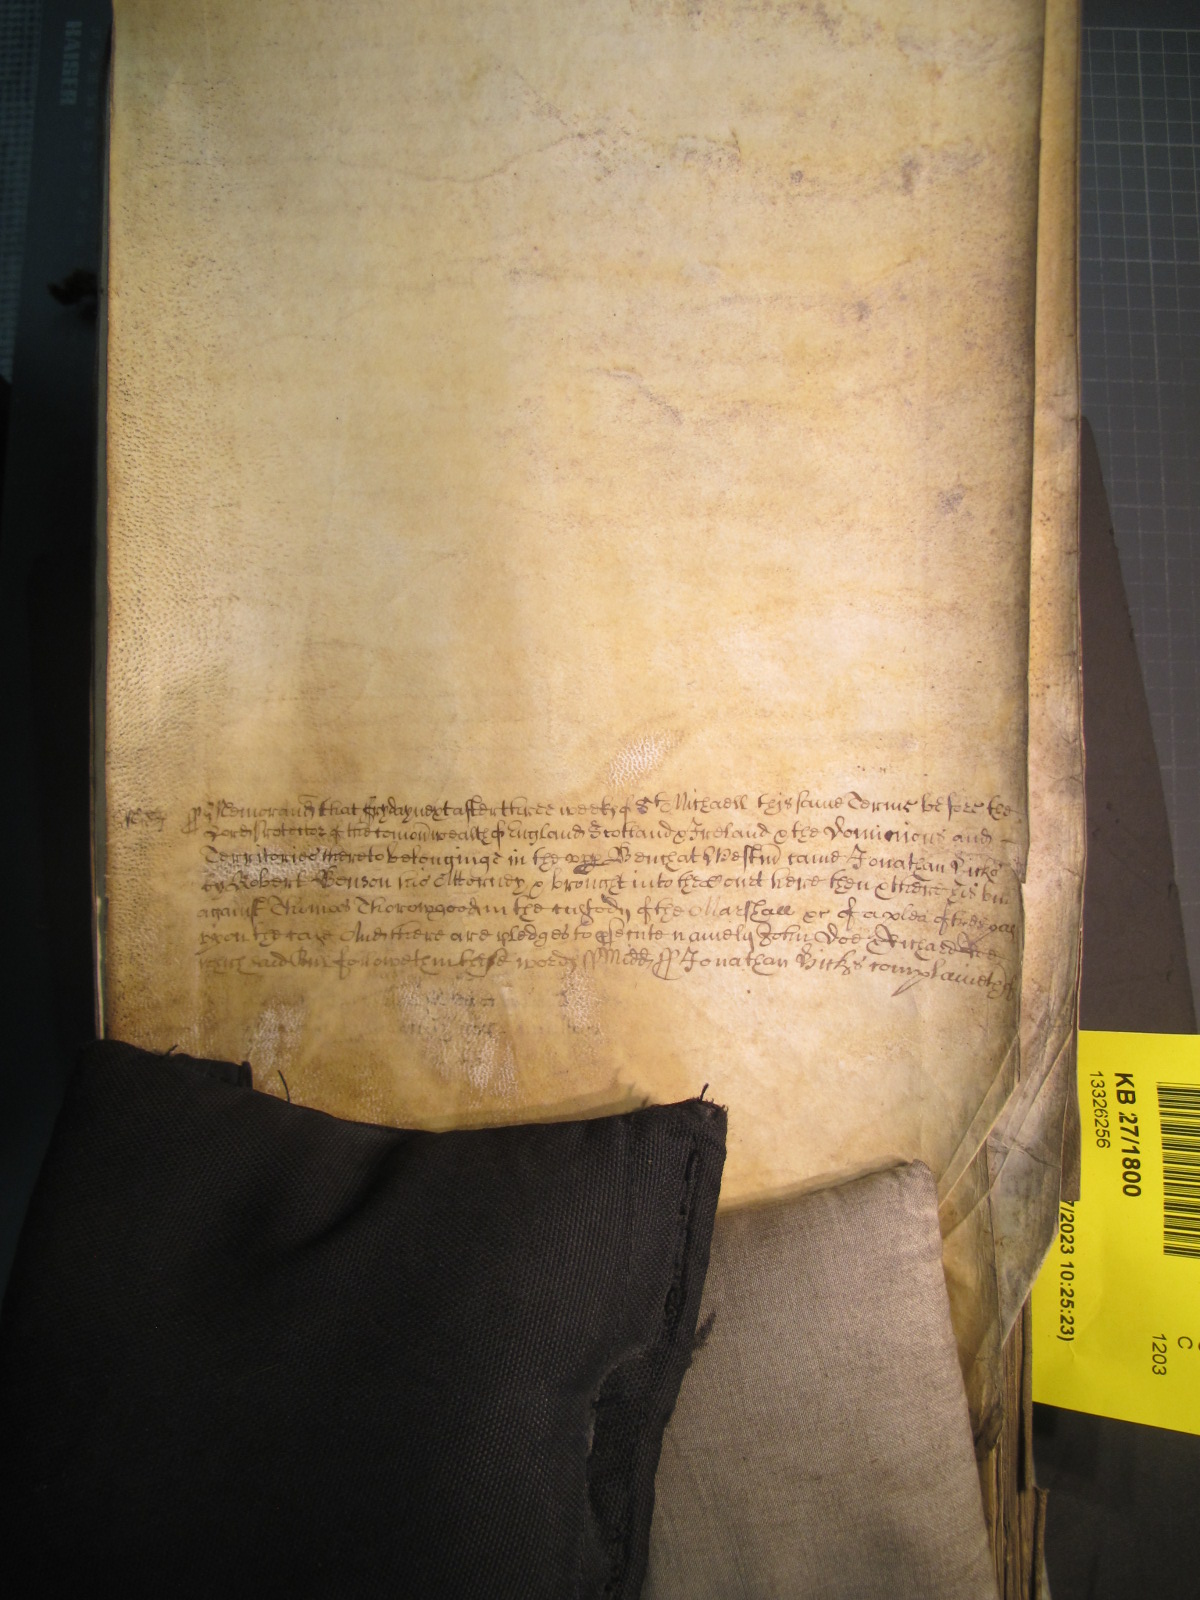 Memorand that fryday next after three weeks of St Michaell this same Terme before the
Lord Protector of the Comonwealth of England Scotland & Ireland & the Dominions and
Territories thereto belonginge in the upp Bench at Westm came Jonathan Hicks
by Robert Benson his Attorney & brought into the Court here then & there his bill
against Thomas Thorowgood in the custody of the Marshall &c of a plea of trespas
upon the case And there are pledges to psecute namely John Doe & Richard Roe
which said bill followeth in these words ss Midd ss Jonathan Hicks complaineth of
KAISER
KB 27/1800
13326256
7/2023 10:25:23)
C
1203